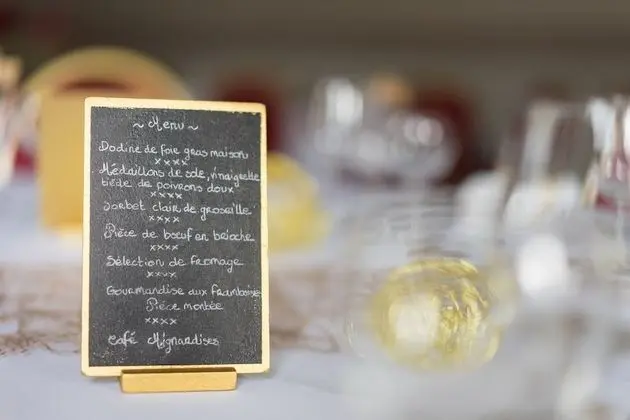 ~ Menu ~
Dodine de foie gras maison
xxxx
Médaillons de sole, vinaigrette
tiède de poivrons doux
xxxx
Sorbet clair de groseille
xxxx
Pièce de bœuf en brioche
xxxx
Sélection de fromage
xxxx
Gourmandise aux framboises
Pièce montée
xxxx
Café Mignardises